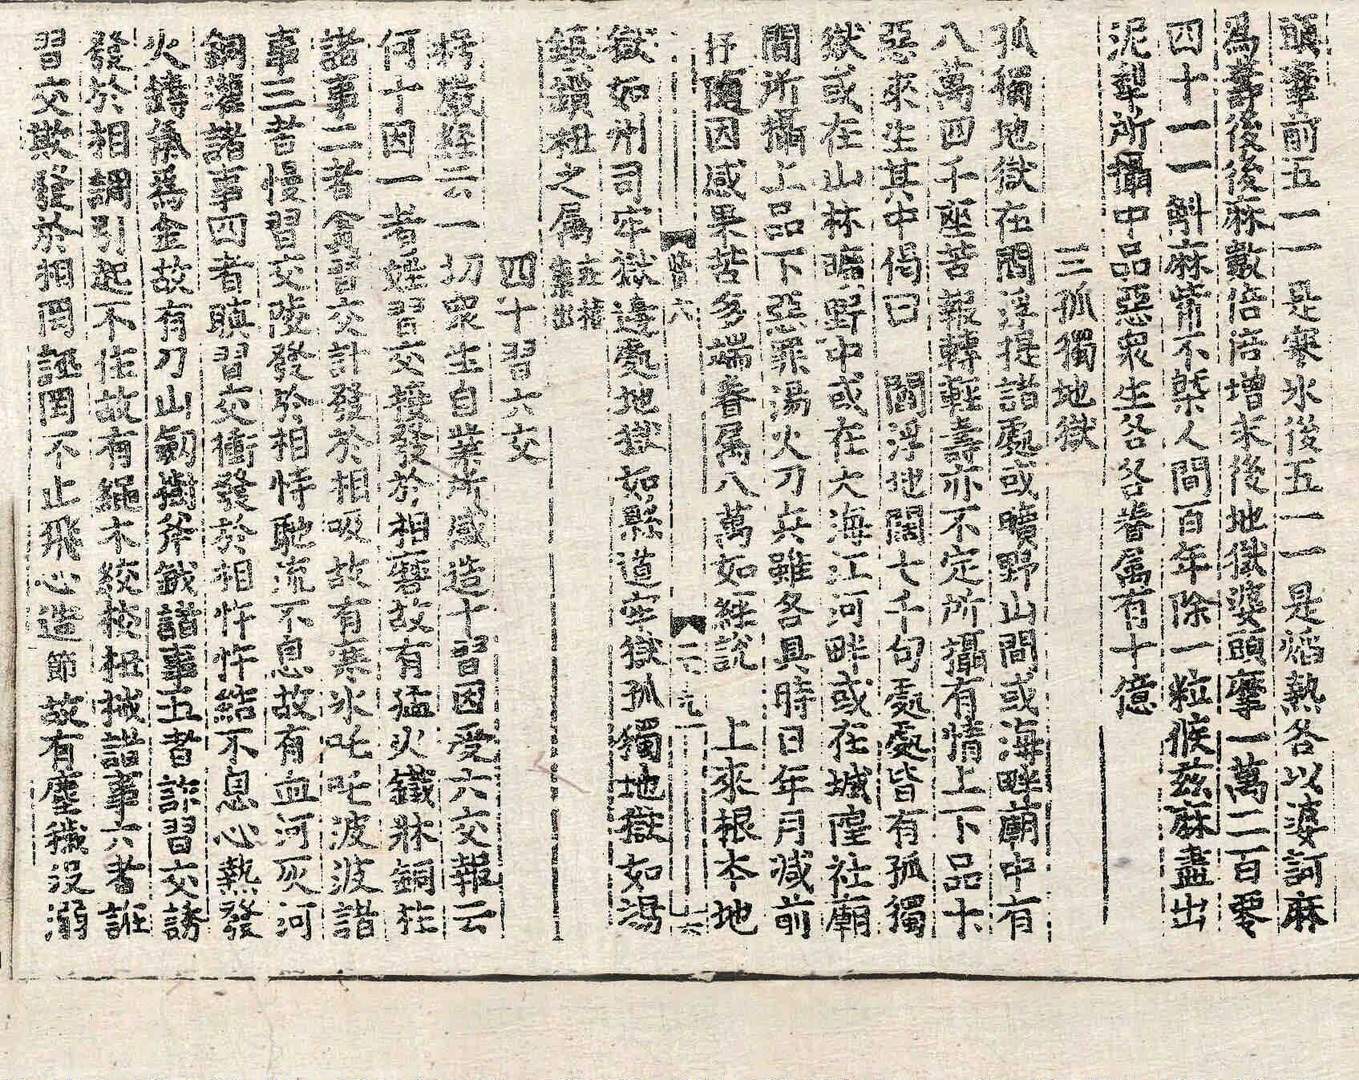 頭摩前五一一 是寒氷後五一一是焰熱各以婆訶麻
為壽後後麻數倍倍增末後地獄婆頭摩一萬二百零
四十一一斛麻常不槩人間百年除一粒候兹麻盡出
泥犁所攝中品惡衆生各各眷属有十億
三孤獨地獄
孤獨地獄在閻浮提諸處或曠野山間或海畔廟中有
八萬四千座苦報轉輕壽亦不定所攝有情上下品十
惡來生其中偈曰 閻浮地闊七千旬處處皆有孤獨
獄或在山林曠野中或在大海江河畔或在城隍社廟
間所攝上品下惡罪湯火刀兵雖各具時日年月减前
抒随因感果苦多端眷属八萬如經說 上來根本地
獄如州司牢獄邊處地獄如縣道牢獄孤獨地獄如湯
鎮鑽杻之属
四十習六交
楞嚴經云一切衆生自業所感造十習因受六交報云
何十因一者婬習交接發於相磨故有猛火鐵牀銅柱
諸事二者貪習交計發於相吸故有寒氷吒吒波波諸
事三者慢習交陵發於相恃馳流不息故有血河灰河
銅灌諸事四者瞋習交衝發於相忤忤結不息心熱發
火鑄氣為金故有刀山劒樹斧鉞諸事五者詐習交誘
發於相調引起不住故有繩木絞校杻械諸事六者誑
習交欺發於相罔誣罔不止飛心造節故有塵穢没溺